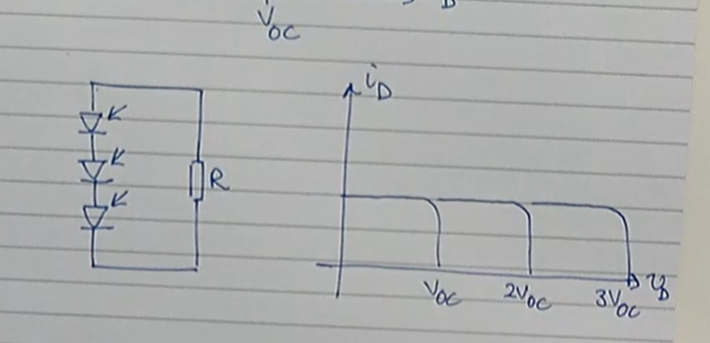 V_OC
i_D
R
V_OC 2V_OC 3V_OC v_D